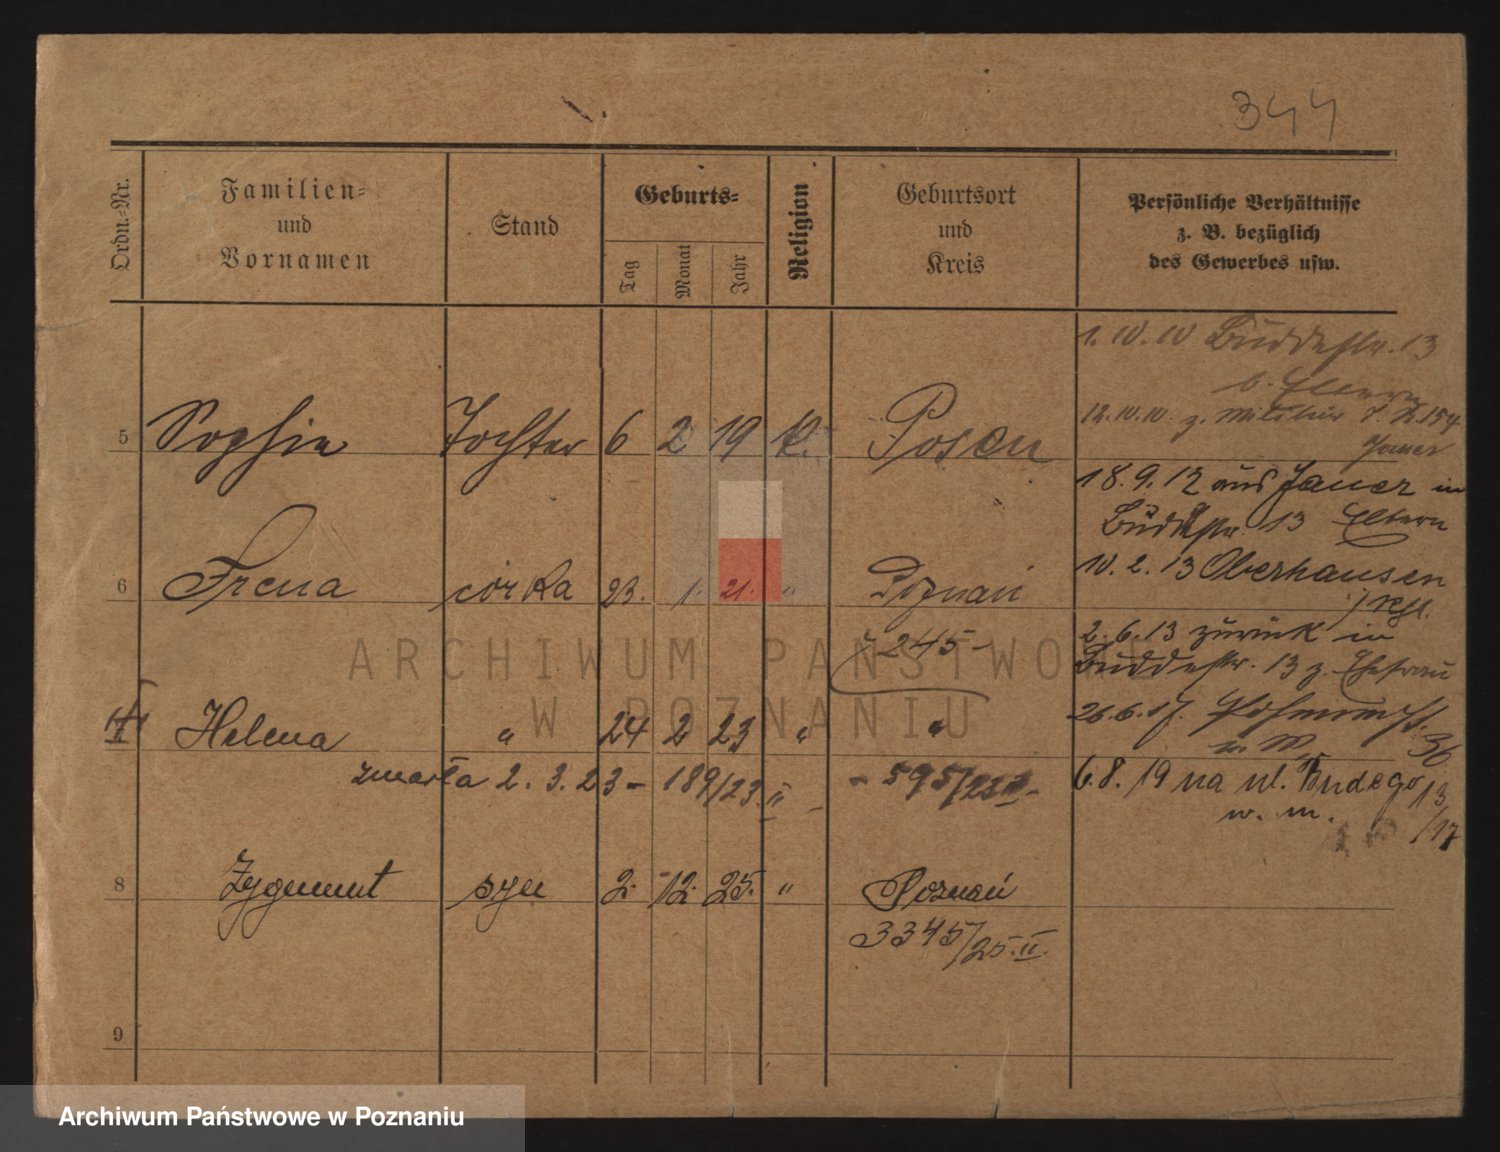 344
Ordn.-Nr.
Familien-
und
Vornamen
Stand
Geburts-
Tag
Monat
Jahr
Religion
Geburtsort
und
Kreis
Persönliche Verhältnisse
z. B. bezüglich
des Gewerbes usw.
1. 10. 10 Buddestr. 13
b. Eltern
5 Sophie Tochter 6 2 19 k. Posen
12.10.10 z. Militär I. R. 154
Jauer
18. 9. 12 aus Jauer in
Buddestr. 13 Eltern
6 Irena córka 23. 1. 21. " Poznań
10. 2. 13 Oberhausen
245
2. 6. 13 zurück in
Buddestr. 13 z. Ehefrau
Helena " 24 2 23 " "
26.6.17.
36
zmarła 2. 3. 23 - 189/23 II - 595/23 II -
6. 8. 19 na ul. Budego 13/17
w. m.
8 Zygmunt syn 2. 12. 25. " Poznań
3345/25. II.
9
ARCHIWUM PAŃSTWOWE
W POZNANIU
Archiwum Państwowe w Poznaniu